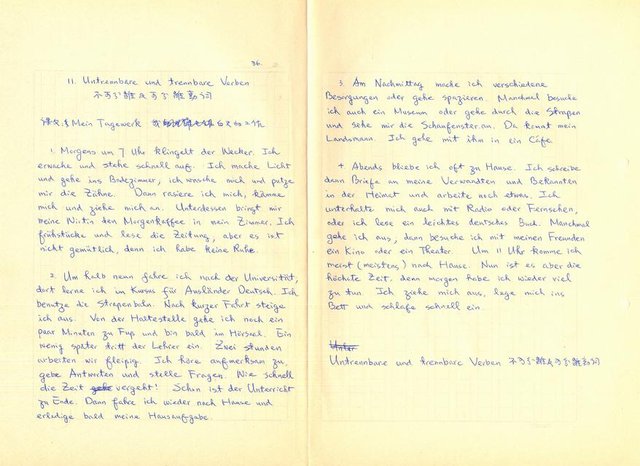 36.
11. Untrennbare und trennbare Verben
不可分離及可分離動詞
課文: Mein Tagewerk
1. Morgens um 7 Uhr klingelt der Wecker. Ich
erwache und stehe schnell auf. Ich mache Licht
und gehe ins Badezimmer, ich wasche mich und putze
mir die Zähne. Dann rasiere ich mich, kämme
mich und ziehe mich an. Unterdessen bringt mir
meine Wirtin den Morgenkaffee in mein Zimmer. Ich
frühstücke und lese die Zeitung, aber es ist
nicht gemütlich, denn ich habe keine Ruhe.
2. Um halb neun fahre ich nach der Universität,
dort lerne ich im Kurse für Ausländer Deutsch. Ich
benutze die Straßenbahn. Nach kurzer Fahrt steige
ich aus. Von der Haltestelle gehe ich noch ein
paar Minuten zu Fuß und bin bald im Hörsaal. Ein
wenig später tritt der Lehrer ein. Zwei Stunden
arbeiten wir fleißig. Ich höre aufmerksam zu,
gebe Antworten und stelle Fragen. Wie schnell
die Zeit vergeht! Schon ist der Unterricht
zu Ende. Dann fahre ich wieder nach Hause und
erledige bald meine Hausaufgabe.
3. Am Nachmittag mache ich verschiedene
Besorgungen oder gehe spazieren. Manchmal besuche
ich auch ein Museum oder gehe durch die Straßen
und sehe mir die Schaufenster an. Da kommt mein
Landsmann. Ich gehe mit ihm in ein Café.
4. Abends bleibe ich oft zu Hause. Ich schreibe
dann Briefe an meine Verwandten und Bekannten
in der Heimat und arbeite noch etwas. Ich
unterhalte mich auch mit Radio oder Fernsehen,
oder ich lese ein leichtes deutsches Buch. Manchmal
gehe ich aus, dann besuche ich mit meinen Freunden
ein Kino oder ein Theater. Um 11 Uhr komme ich
meist (meistens) nach Hause. Nun ist es aber die
höchste Zeit, denn morgen habe ich wieder viel
zu tun. Ich ziehe mich aus, lege mich ins
Bett und schlafe schnell ein.
Untrennbare und trennbare Verben 不可分離及可分離動詞